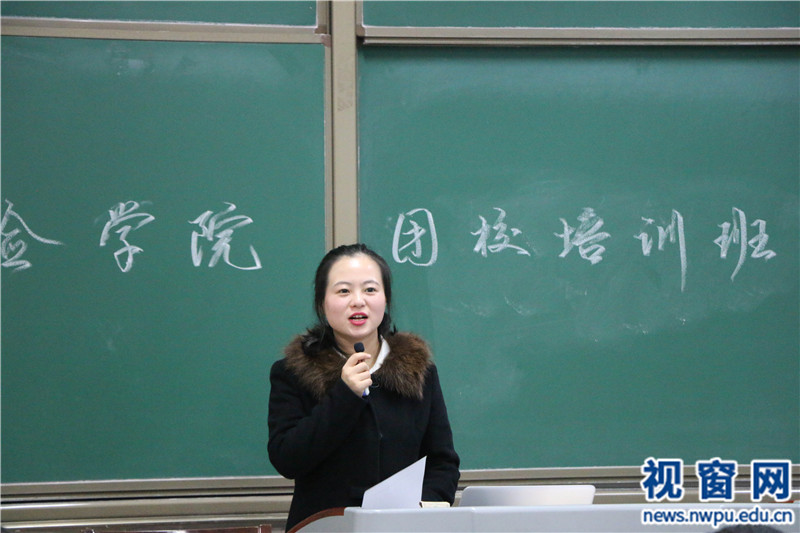 学院 团校培训班
视窗网
news.nwpu.edu.cn